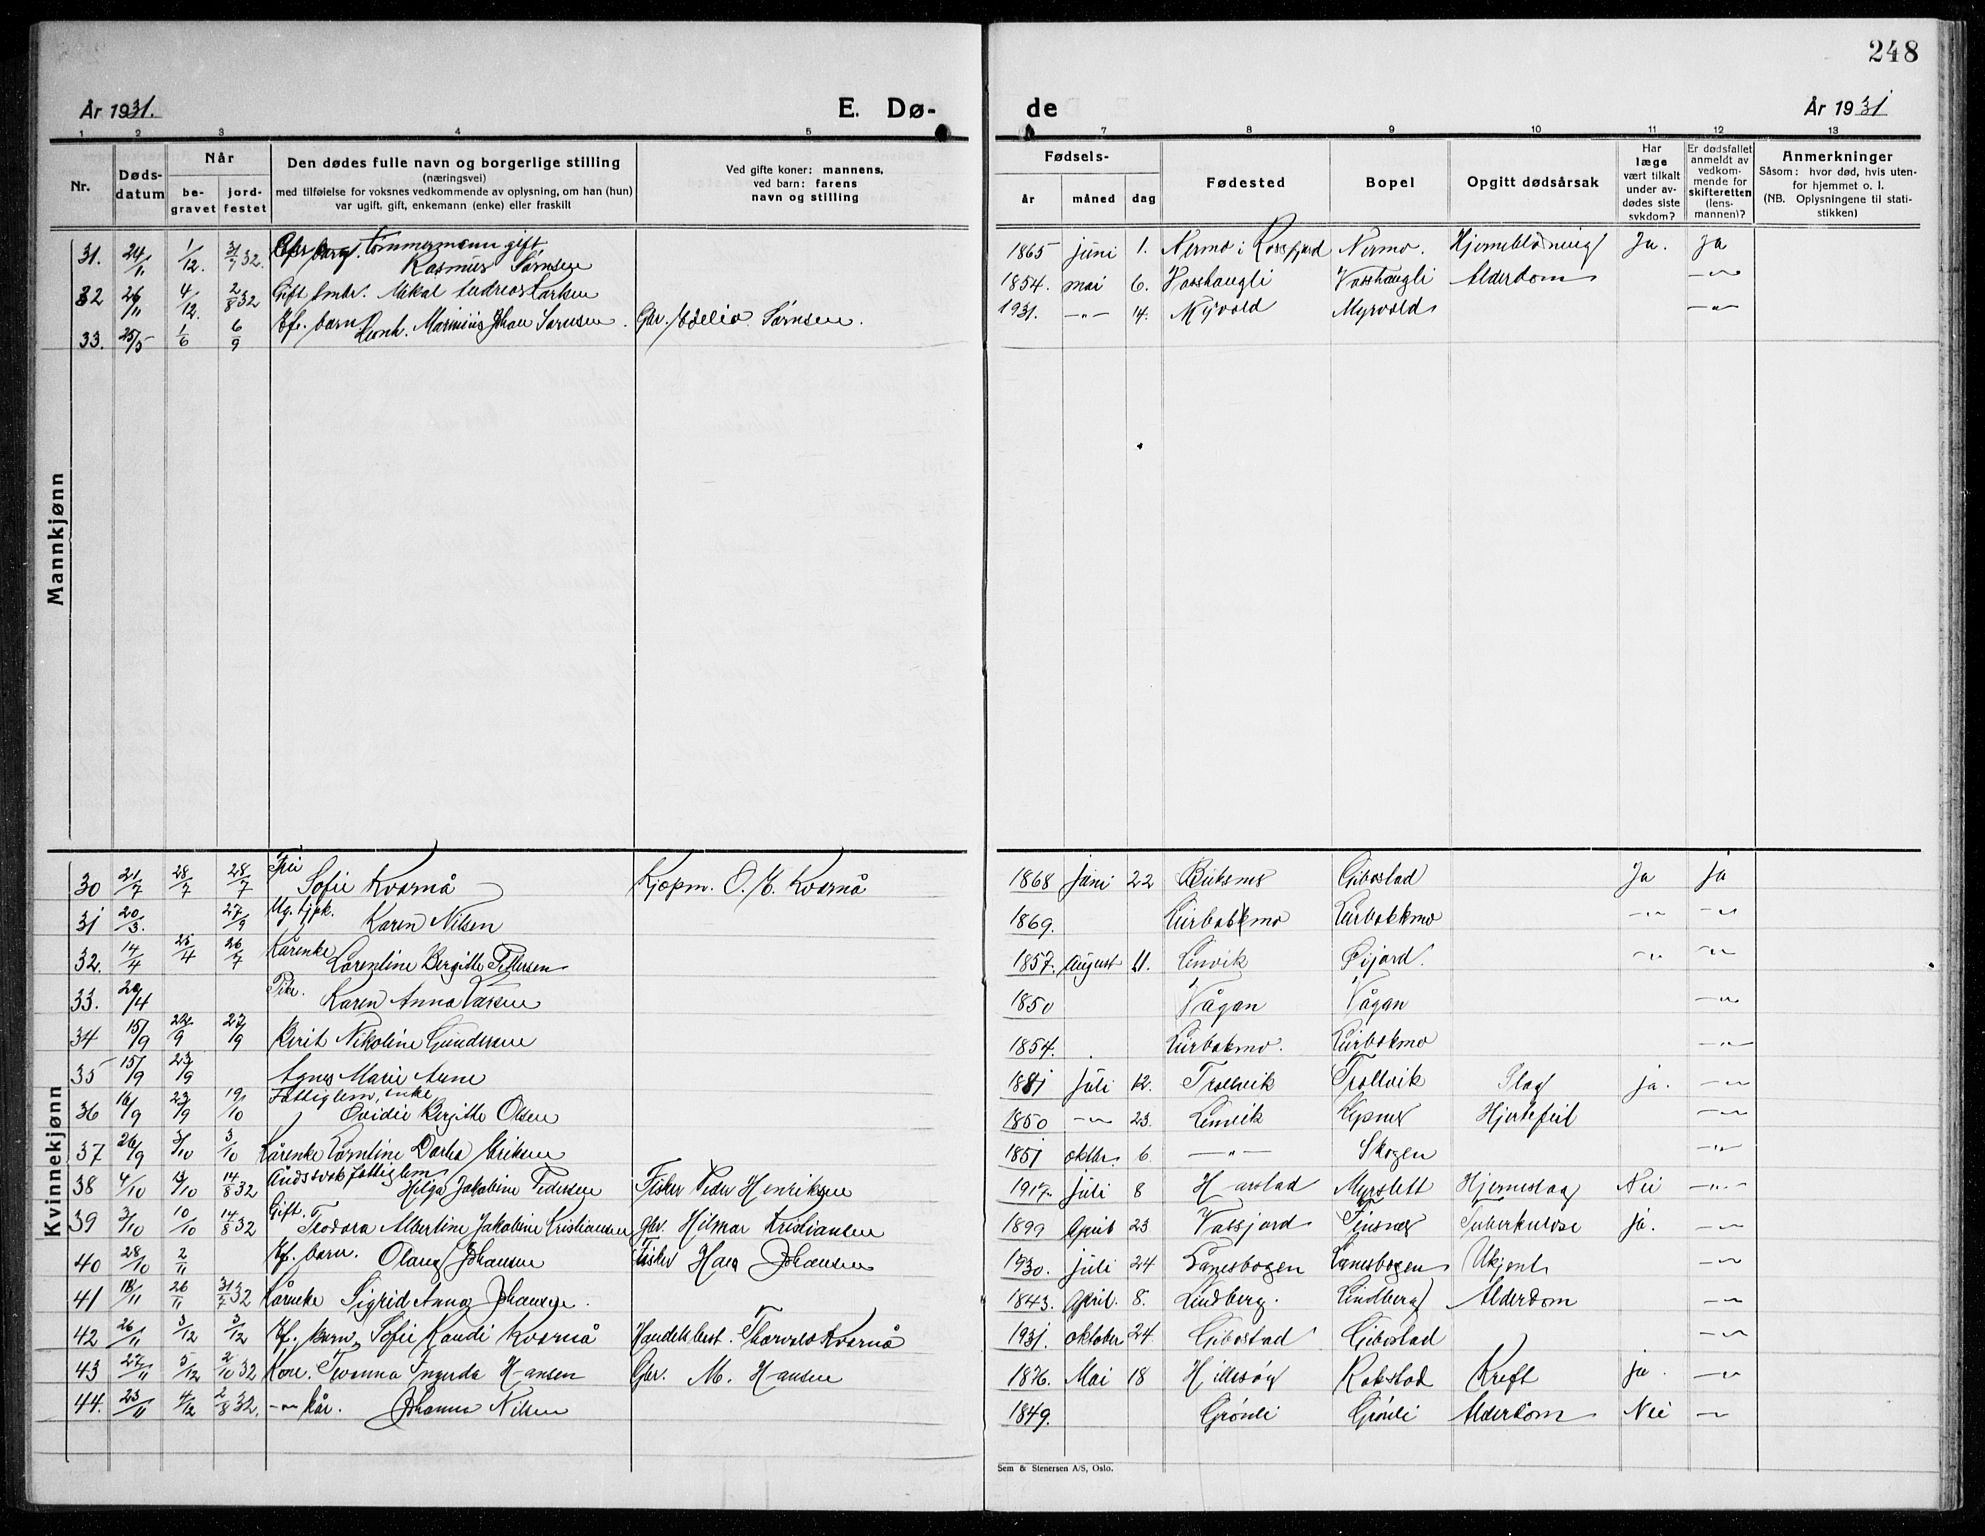 248
År 1931.
E. Dø-
de
År 1931
1 2 3 4 5
7 8 9 10 11 12 13
Nr.
Døds-
datum
Når
be-
gravet
jord-
festet
Den dødes fulle navn og borgerlige stilling
(næringsvei)
med tilføielse for voksnes vedkommende av oplysning, om han (hun)
var ugift, gift, enkemann (enke) eller fraskilt
Ved gifte koner: mannens,
ved barn: farens
navn og stilling
Fødsels-
år måned dag
Fødested
Bopel
Opgitt dødsårsak
Har
læge
vært tilkalt
under av-
dødes siste
sykdom?
Er dødsfallet
anmeldt av
vedkom-
mende for
skifteretten
(lens-
mannen)?
Anmerkninger
Såsom: hvor død, hvis uten-
for hjemmet o. l.
(NB. Oplysningene til stati-
stikken)
Mannkjønn
31. 24/11 1/12. 31/7 32. tømmermann gift Rasmus Sørnsen 1865 juni 1. Nermo i Rossfjord Nermo. Hjerneblødning Ja. ja
32 26/11 4/12. 2/8 32 Gift Mikal Andreas Larsen 1854. mai 6. Vasshaugli Vasshaugli Alderdom -"-
33. 25/5 1/6 6/9 Ekf. barn Leonh. Marinius Johan Sørnsen. Gbr. Edelio Sørnsen. 1931. -"- 14. Myrvold Myrvold -"-
Kvinnekjønn
30 21/7 28/7 28/7 Frøi Sofie Kvarnå Kjøpm. O. E. Kvarnå 1868 juni 22 Buksnes Gibostad Ja ja
31 20/3. 27/9 Ug. tjpk. Karen Nilsen 1869. Lurbakkmo Lurbakkmo -"- -"-
32. 14/4 25/4 26/7 Kårenke Lorentine Bergitte Pettersen 1857. August 11. Lenvik Øijord. -"- -"-
33. 20/4 Karen Anna Larsen 1850 Vågan Vågan -"-
34 15/9 22/9 27/9 Berit Nikoline Gundersen 1854. Lurbakmo. Lurbakmo -"-
35 15/9 23/9 Agnes Marie Aune 1881 juli 12. Trollvik Trollvik Slag ja. -"-
36 16/9 23/9 19/10 Fattiglem, enke Ovidie Bergitte Olsen 1850 -"- 23. Lenvik Hjertefeil -"-
37 26/9 3/10 3/10 Kårenke Dorthea Eriksen 1851 oktbr. 6. -"- Skogen -"-
38 4/10 13/10 14/8 32 Åndssvak fattiglem Helga Jakobine Pedersen Fisker Peder Henriksen 1917. juli 8 Harstad Myrslett Hjerneslag Nei -"-
39 3/10 10/10 14/8 32 Gift. Teodora Albertine Jakobine Kristiansen gbr. Hilmar Kristiansen 1899 April 23 Vassjord Finsnes Tuberkulose ja. -"-
40 28/10 2/11 Ekf. barn. Olaug Johansen Fisker Hans Johansen 1930. juli 24 Lånesbogen Lanesbogen Ukjent -"-
41 18/11 26/11 31/7 32 Kårenke Sigrid Anna Johansen. 1843. April. 8. Lindberg. Lindberg Alderdom -"-
42 26/11 3/12 3/12 Ekf. barn, Sofie Randi Kvarnå Handelsbest. Thorvald Kvarnå 1931. oktober 24. Gibostad Gibostad -"-
43 27/11 5/12 2/10 32 Kone. Ingerda Hansen Gbr. M. Hansen 1876. Mai 18 Hillesøy Rakstad Kreft ja. -"-
44. 23/11 4/12 2/8 32. -"- kår. Johanna Nilsen 1849. Grønli Grønli Alderdom Nei -"-
Sem & Stenersen A/S, Oslo.